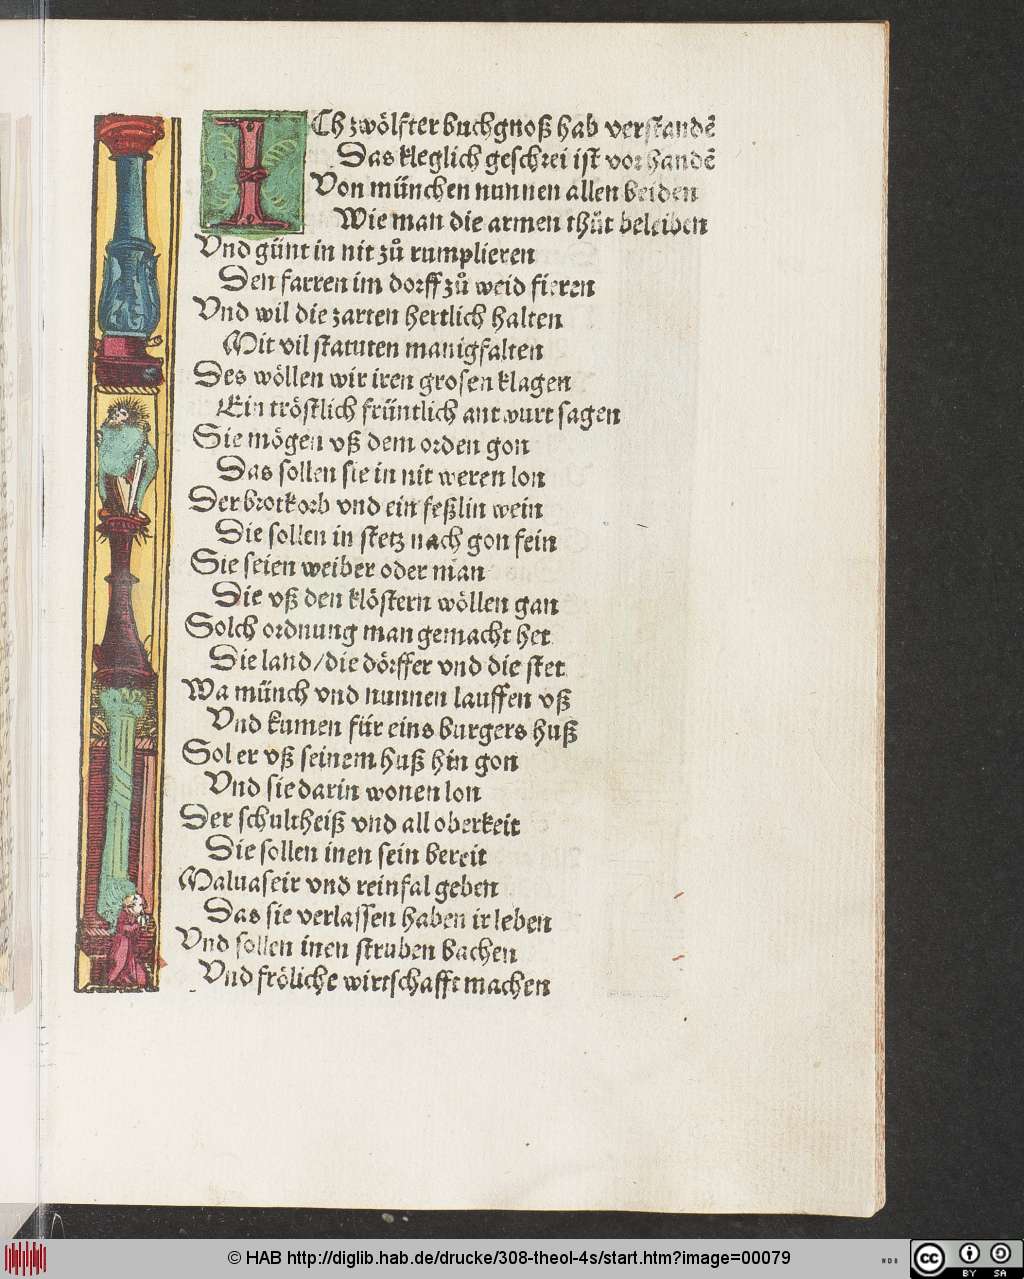 ICh zwölfter buchgnoß hab verstandē
Das kleglich geschrei ist vorhandē
Von münchen nunnen allen beiden
Wie man die armen thůt beleiben
Vnd günt in nit zů rumplieren
Den farren im dorff zů weid fieren
Vnd wil die zarten hertlich halten
Mit vil statuten manigfalten
Des wöllen wir iren grosen klagen
Ein tröstlich früntlich antwurt sagen
Sie mögen vß dem orden gon
Das sollen sie in nit weren lon
Der brotkorb vnd ein feßlin wein
Die sollen in stetz nach gon fein
Sie seien weiber oder man
Die vß den klöstern wöllen gan
Solch ordnung man gemacht het
Die land/die dörffer vnd die stet
Wa münch vnd nunnen lauffen vß
Vnd kumen für eins burgers huß
Sol er vß seinem huß hin gon
Vnd sie darin wonen lon
Der schultheiß vnd all oberkeit
Die sollen inen sein bereit
Maluaseir vnd reinfal geben
Das sie verlassen haben ir leben
Vnd sollen inen struben bachen
Vnd fröliche wirtschafft machen
© HAB http://diglib.hab.de/drucke/308-theol-4s/start.htm?image=00079
WDB
cc BY SA